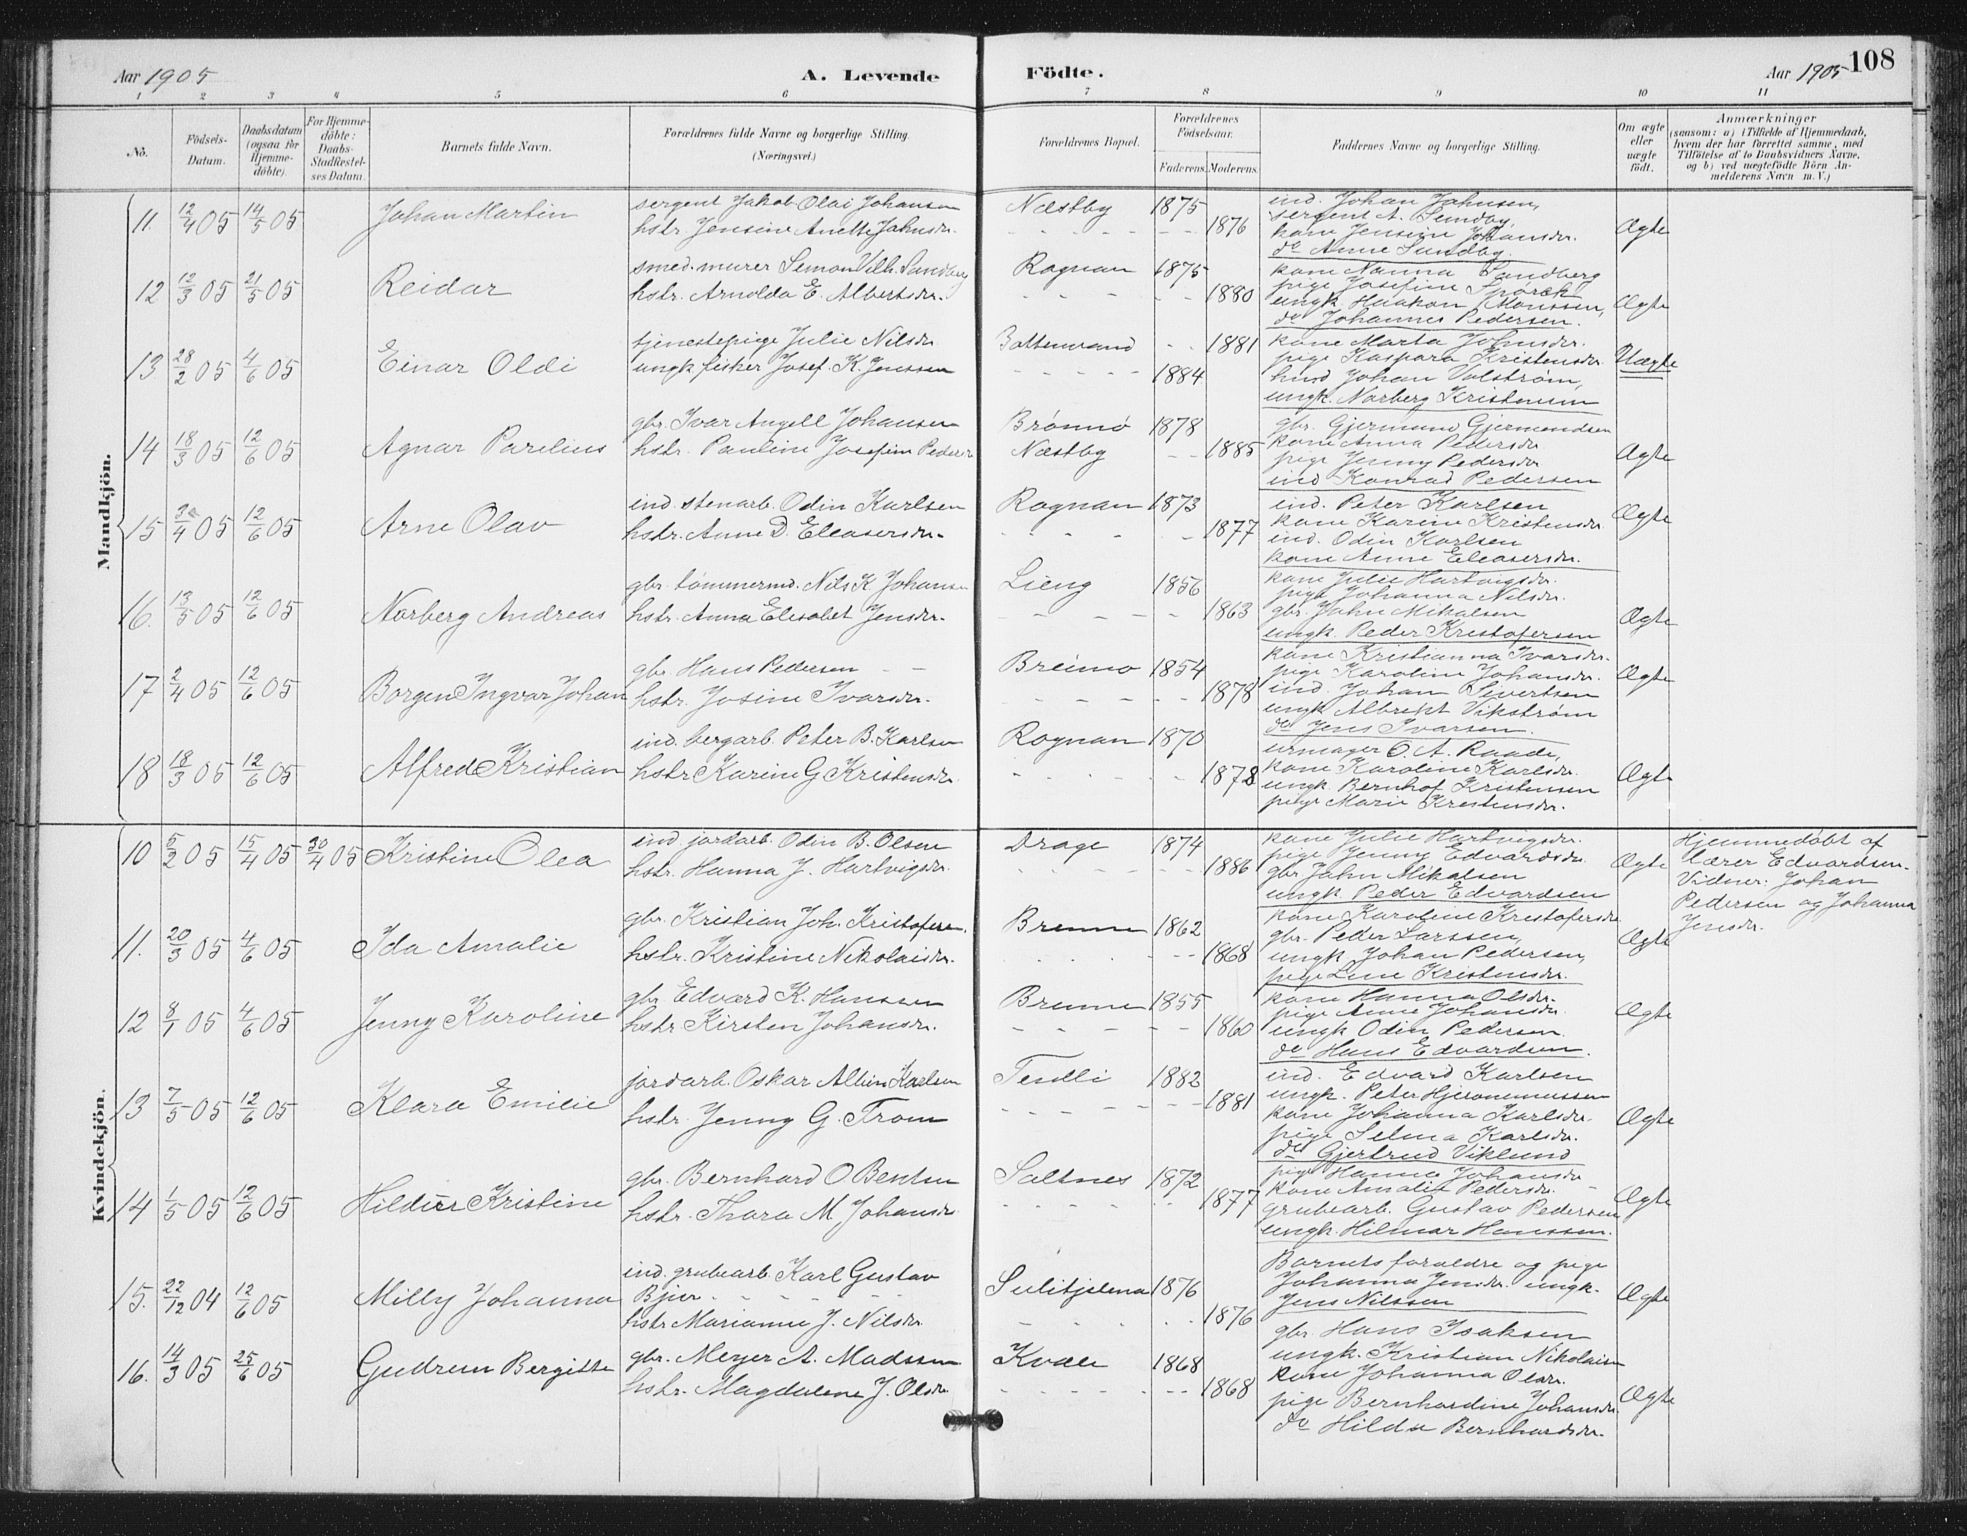 Aar 1905
A. Levende
Födte.
Aar 1905
108
1 2 3 4 5 6 7 8 9 10 11
No.
Födsels-Datum.
Daabsdatum (ogsaa för Hjemme-döbte).
For Hjemme-döbte: Daabs-Stadfæstel-ses Datum.
Barnets fulde Navn.
Forældrenes fulde Navne og borgerlige Stilling.
(Næringsvei.)
Forældrenes Bopæl.
Forældrenes Födselsaar.
Faderens. Moderens.
Faddernes Navne og borgerlige Stilling.
Om ægte eller uægte födt.
Anmærkninger
(saasom: a) i Tilfælde af Hjemmedaab,
hvem der har forrettet samme, med
Tilföielse af to Daabsvidners Navne,
og b) ved uægtefödte Börn An-
melderens Navn m. V.)
Mandkjön.
11. 12/4 05 14/5 05 Johan Martin
sergent Jakob Olai Johansen
hstr. Jensine Anette Jahnsdr.
Næstby 1875
1876
ind. Johan Jahnsen,
sergent A. Sundby,
kone Jensine Johansdr.
do Anne Sundby.
Ægte
12 12/3 05 21/5 05 Reidar
smed. murer Semon Vilh. Sandberg
hstr. Arnolda E. Albertsdr.
Rognan 1875
1880
kone Nanna Sandberg
pige Josefine Spörck
ungk. Haakon Monssen,
do Johannes Pedersen.
Ægte
13 28/2 05 4/6 05 Einar Oldi
tjenestepige Julie Nilsdr.
ungk fisker Josef. K. Jenssen
Bottenvand 1881
1884
kone Marta Johnsdr.
pige Kaspara Kristensdr.
husd Johan Valström,
ungk. Norberg Kristensen
Uægte
14 18/3 05 12/6 05 Agnar Parelius
gbr. Ivar Angell Johansen
hstr. Pauline Josefine Pedersdr
Brönnö 1878
Næstby 1885
gbr. Gjermund Gjermundsen
kone Anna Pedersdr
pige Jenny Pedersdr
ind Konrad Pedersen
Ægte
15 30/4 05 12/6 05 Arne Olav
ind stenarb. Odin Karlsen
hstr. Anne D. Eleasersdr.
Rognan 1873
1877
ind. Peter Karlsen
kone Karine Kristensdr.
ind. Odin Karlsen
kone Anne Eleasersdr.
Ægte
16. 13/5 05 12/6 05 Norberg Andreas
gbr. tömmermd. Nils K Johansen
hstr. Anna Elesabet Jensdr.
Lieng 1856
1863
kone Julie Hartvigsdr.
pige Johanna Nilsdr.
gbr. Jahn Mikalsen
ungk. Peder Kristofersen
Ægte
17 2/4 05 12/6 05 Borgen Ingvar Johan
gbr. Hans Pedersen
hstr. Josine Ivarsdr.
Breimo 1854
1878
kone Kristianna Ivarsdr.
pige Karoline Johansdr.
ind. Johan Sivertsen
ungk Albrekt Vikström
do Jens Ivarsen.
Ægte
18 18/3 05 12/6 05 Alfred Kristian
ind. bergarb. Peter B. Karlsen
hstr Karine G Kristensdr.
Rognan 1870
1878
urmager O. A. Raade,
kone Karoline Karlsdr.
ungk. Bernhof Kristensen
pige Marie Kristensdr.
Ægte
Kvindekjön.
10 5/2 05 15/4 05 30/4 05 Kristine Olea
ind jordarb. Odin B. Olsen
hstr. Hanna J. Hartvigsdr.
Drage 1874
1886
kone Julie Hartvigsdr.
pige Jenny Edvardsdr.
gbr Jahn Mikalsen
ungk. Peder Edvardsen
Ægte
Hjemmedöbt af
lærer Edvardsen.
Vidner: Johan
Pedersen og Johanna
Jensdr.
11. 20/3 05 4/6 05 Ida Amalie
gbr. Kristian Joh. Kristofersen.
hstr. Kristine Nikolaisdr.
Brenne 1862
1868
kone Karoline Kristofersdr
gbr. Peder Larssen,
ungk Johan Pedersen,
pige Line Kristensdr.
Ægte
12 8/1 05 4/6 05 Jenny Karoline
gbr Edvard K. Hanssen
hstr Kirsten Johansdr.
Brenne 1855
1860
kone Hanna Olsdr.
pige Anne Johansdr.
ungk Odin Pedersen.
do Hans Edvardsen.
Ægte
13 7/5 05 12/6 05 Klara Emilie
jordarb. Oskar Albin Karlsen
hstr. Jenny G. Trom
Tendli 1882
1881
ind. Edvard Karlsen
ungk. Peter Hjeronemussen
kone Johanna Karlsdr.
pige Selma Karlsdr.
do Gjertrud Viklund
Ægte
14 1/5 05 12/6 05 Hildur Kristine
gbr. Bernhard O Bentsen
hstr. Thora M. Johansdr.
Saltnes 1872
1877
pige Hanna Johansdr
kone Amalie Pedersdr.
grubearb. Gustav Pedersen
ungk. Hilmar Hanssen.
Ægte
15. 22/12 04 12/6 05 Milly Johanna
ind. grubearb. Karl Gustav
Bjur
hstr Marianne J. Nilsdr.
Sulitjelma 1876
1876
Barnets foraldre og pige
Johanna Jensdr. ungk.
Jens Nilssen
Ægte
16. 14/3 05 25/6 05 Gudrun Bergitte
gbr. Meyer A. Madssen
hstr. Magdalene J. Olsdr.
Kvæle 1868
1868
gbr Hans Isaksen
ungk. Kristian Nikolaisen
kone Johanna Olsdr.
pige Bernhardine Johansdr.
do Hilda Bernhardsdr.
Ægte